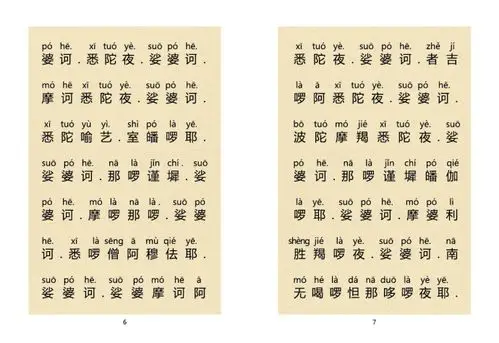 pó hē. xī tuó yè. suō pó hē.
婆诃.悉陀夜.娑婆诃.
mó hē xī tuó yè. suō pó hē.
摩诃悉陀夜.娑婆诃.
xī tuó yù yì. shì pó là yē.
悉陀喻艺.室皤啰耶.
suō pó hē. nā là jǐn chí. suō
娑婆诃.那啰谨墀.娑
pó hē. mó là nā là. suō pó
婆诃.摩啰那啰.娑婆
hē. xī là sēng ā mù qié yē.
诃.悉啰僧阿穆佉耶.
suō pó hē. suō pó mó hē ā
娑婆诃.娑婆摩诃阿
6
xī tuó yè. suō pó hē. zhě jí
悉陀夜.娑婆诃.者吉
là ā xī tuó yè. suō pó hē.
啰阿悉陀夜.娑婆诃.
bō tuó mó jié xī tuó yè. suō
波陀摩羯悉陀夜.娑
pó hē. nā là jǐn chí pó qié
婆诃.那啰谨墀皤伽
là yē. suō pó hē. mó pó lì
啰耶.娑婆诃.摩婆利
shèng jié là yè. suō pó hē. nā
胜羯啰夜.娑婆诃.南
mó hé là dá nā duō là yè yē.
无喝啰怛那哆啰夜耶.
7